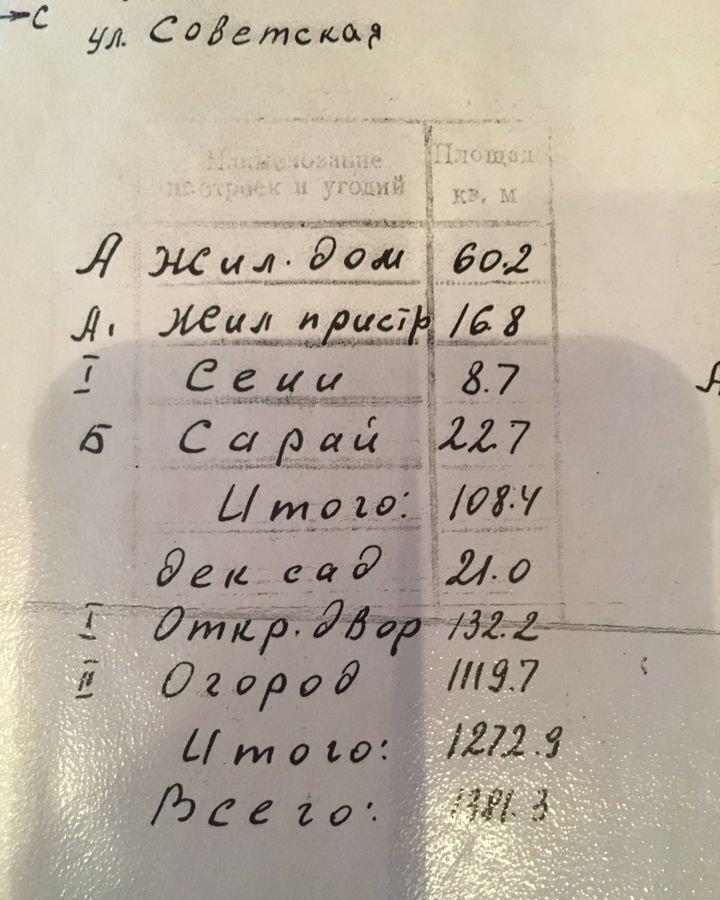 → С
ул. Советская
Наименование построек и угодий Площад кв. м
А Жил. дом 60.2
А₁ Жил пристр 16.8
I Сени 8.7
Б Сарай 22.7
Итого: 108.4
дек сад 21.0
I Откр. двор 132.2
II Огород 1119.7
Итого: 1272.9
Всего: 1381.3